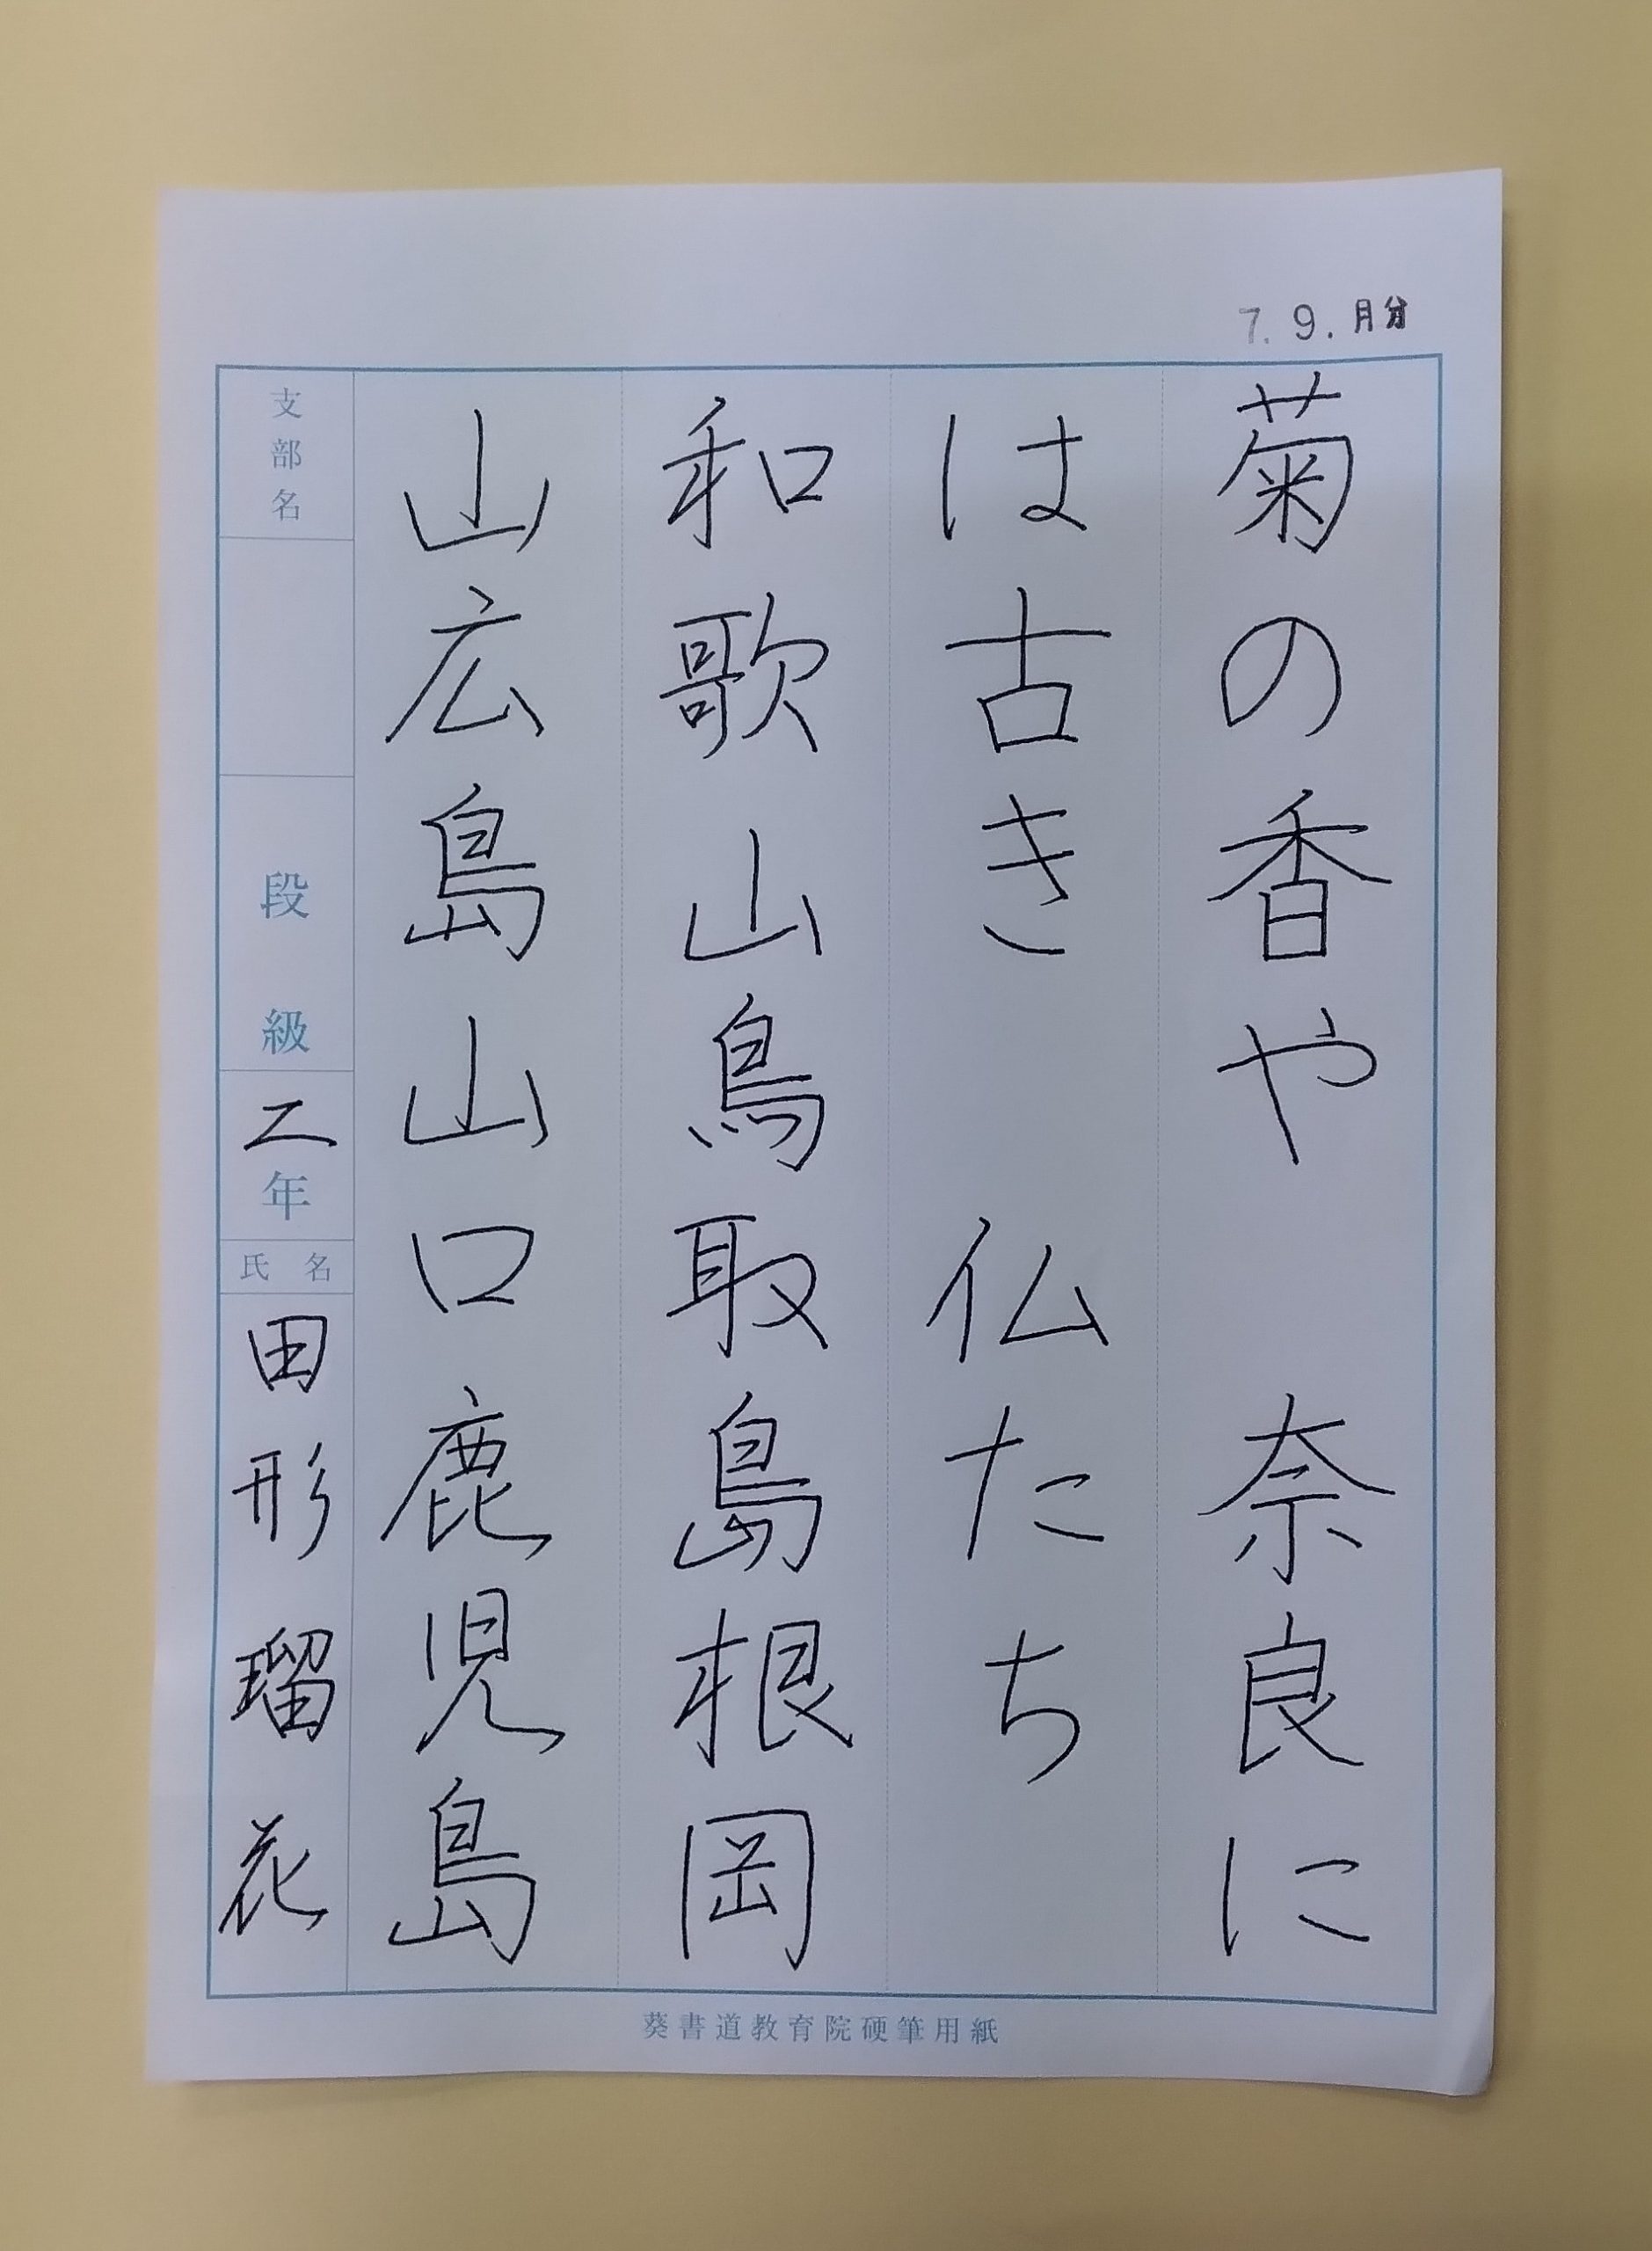 7. 9. 月分
菊の香や 奈良に
は古き 仏たち
和歌山鳥取島根岡
山広島山口鹿児島
支部名
段 級
二年
氏名
田形瑠花
葵書道教育院硬筆用紙